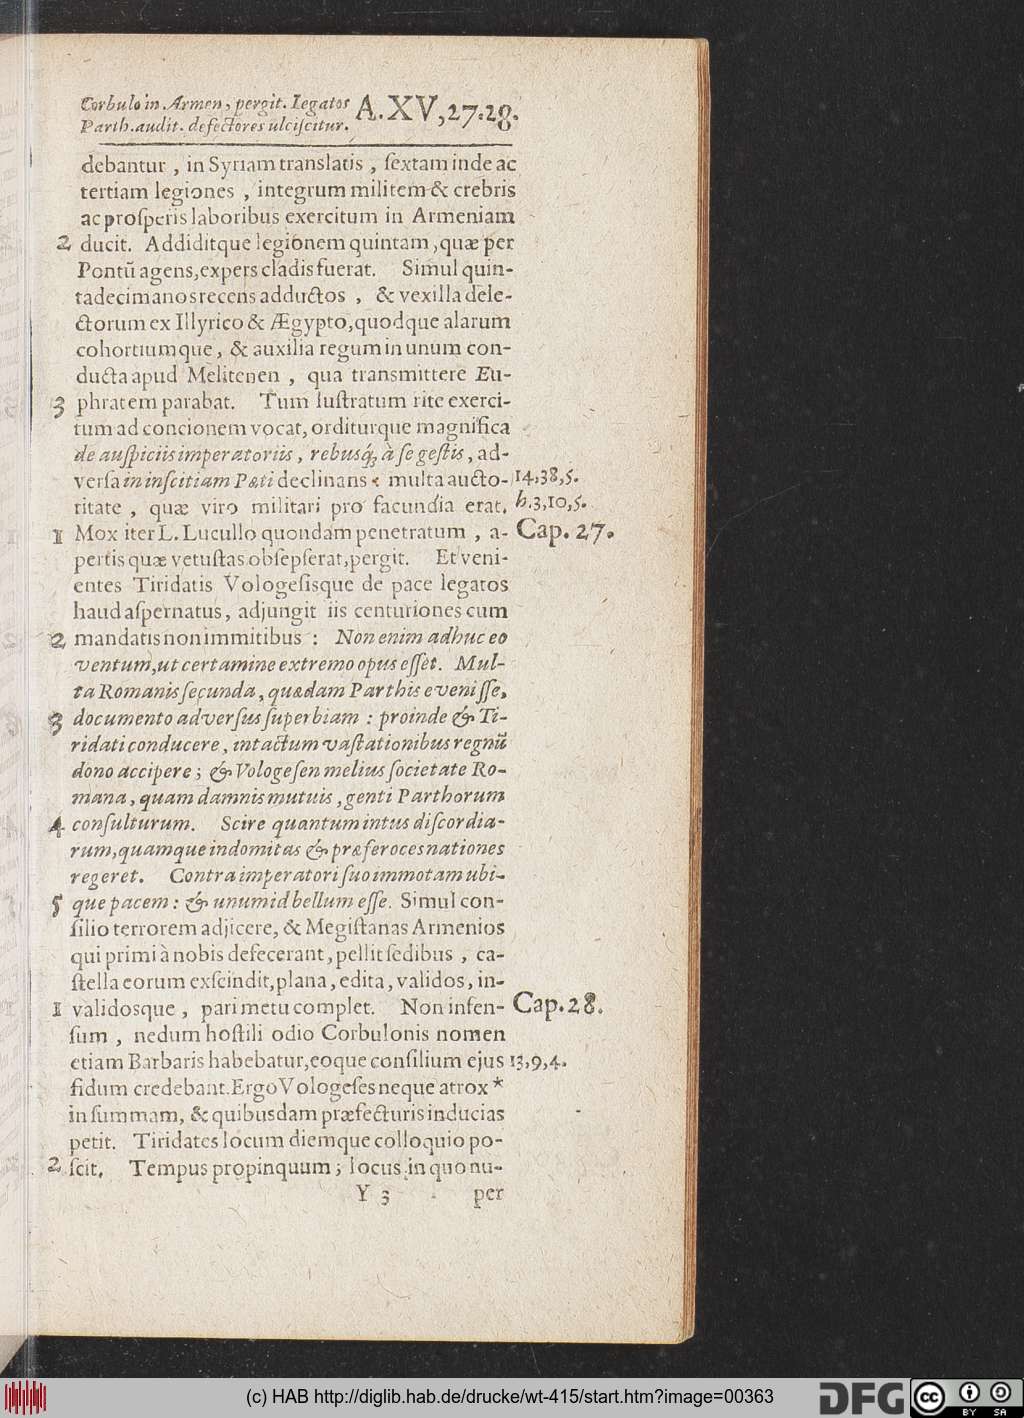 Corbulo in Armen, pergit. Legatos
Parth. audit. defectores ulciscitur.
A. XV, 27. 28.
debantur , in Syriam translatis , ſextam inde ac
tertiam legiones , integrum militem & crebris
ac proſperis laboribus exercitum in Armeniam
2 ducit. Addiditque legionem quintam, quæ per
Pontũ agens, expers cladis fuerat. Simul quin-
tadecimanos recens adductos , & vexilla dele-
ctorum ex Illyrico & Ægypto, quodque alarum
cohortiumque, & auxilia regum in unum con-
ducta apud Melitenen , qua transmittere Eu-
3 phratem parabat. Tum luſtratum rite exerci-
tum ad concionem vocat, orditurque magnifica
de auſpiciis imperatoriis, rebusq́; à ſe geſtis, ad-
verſa in inſcitiam Pæti declinans multa aucto- 14,38,5.
ritate , quæ viro militari pro facundia erat. h.3,10,5.
1 Mox iter L. Lucullo quondam penetratum , a- Cap. 27.
pertis quæ vetuſtas obſepſerat, pergit. Et veni-
entes Tiridatis Vologeſisque de pace legatos
haud aſpernatus, adjungit iis centuriones cum
2 mandatis non immitibus : Non enim adhuc eo
ventum, ut certamine extremo opus eſſet. Mul-
ta Romanis ſecunda, quædam Parthis eveniſſe,
3 documento adverſus ſuperbiam : proinde & Ti-
ridati conducere, intactum vaſtationibus regnũ
dono accipere; & Vologeſen melius ſocietate Ro-
mana, quam damnis mutuis, genti Parthorum
4 conſulturum. Scire quantum intus diſcordia-
rum, quamque indomitas & præferoces nationes
regeret. Contra imperatori ſuo immotam ubi-
5 que pacem: & unum id bellum eſſe. Simul con-
ſilio terrorem adjicere, & Megiſtanas Armenios
qui primi à nobis defecerant, pellit ſedibus , ca-
ſtella eorum exſcindit, plana, edita, validos, in-
1 validosque, pari metu complet. Non infen- Cap. 28.
ſum , nedum hoſtili odio Corbulonis nomen
etiam Barbaris habebatur, eoque conſilium ejus 13,9,4.
fidum credebant. Ergo Vologeſes neque atrox *
in ſummam, & quibusdam præfecturis inducias
petit. Tiridates locum diemque colloquio po-
2 ſcit. Tempus propinquum; locus in quo nu-
Y 3 per
(c) HAB http://diglib.hab.de/drucke/wt-415/start.htm?image=00363
DFG
cc BY SA